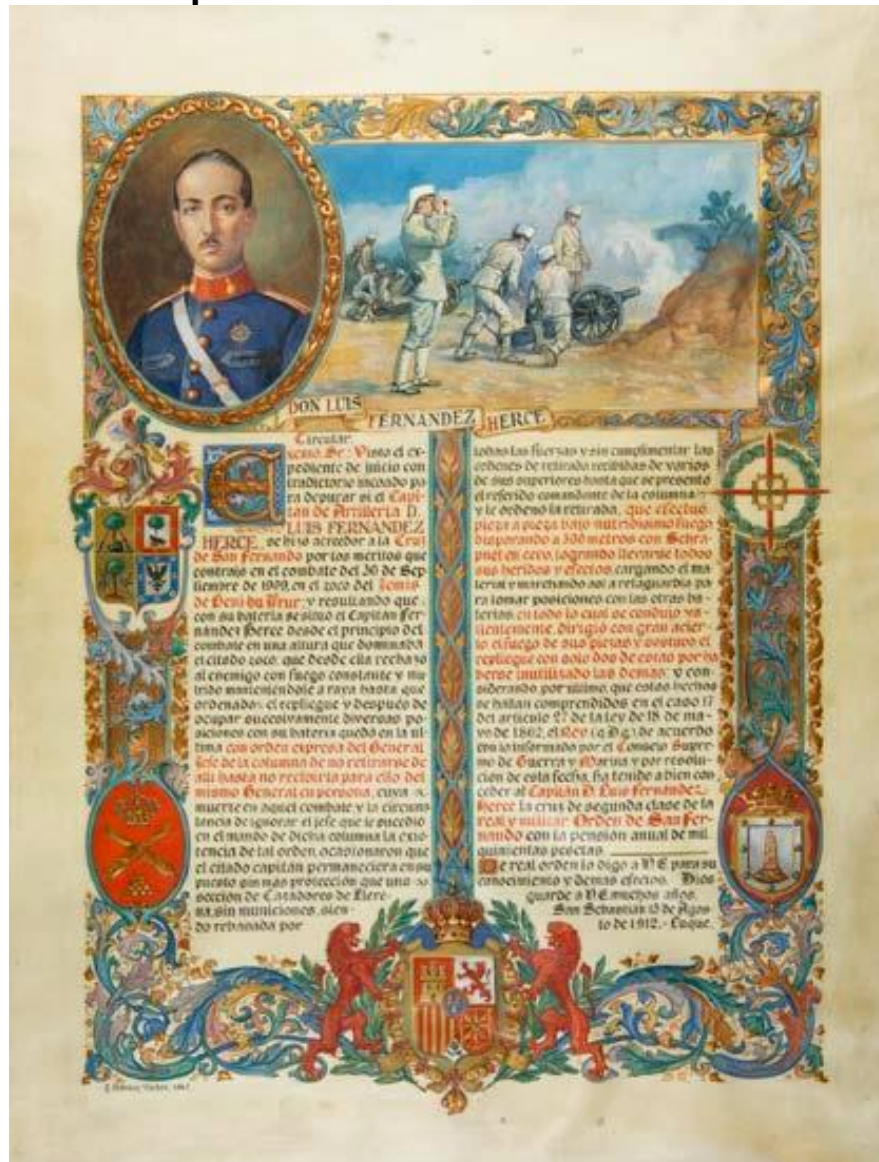 DON LUIS
FERNANDEZ
HERCE
Circular.
Excmo. Sr: Visto el ex-
pediente de juicio con
tradictorio incoado pa
ra depurar si el Capi-
tán de Artillería D.
LUIS FERNANDEZ
HERCE, se hizo acreedor a la Cruz
de San Fernando por los meritos que
contrajo en el combate del 30 de Sep
tiembre de 1909, en el zoco del Jemis
de Beni bu Ifrur; y resultando que
con su bateria se situó el Capitan Fer-
nandez Herce desde el principio del
combate en una altura que dominaba
el citado zoco, que desde ella rechazó
al enemigo con fuego constante y nu
trido manteniendole a raya hasta que
ordenado el repliegue y después de
ocupar sucesivamente diversas po-
siciones con su bateria quedó en la ul
tima con orden expresa del General
Jefe de la columna de no retirarse de
alli hasta no recibirla para ello del
mismo General en persona, cuya
muerte en aquel combate, y la circuns
tancia de ignorar el jefe que le sucedió
en el mando de dicha columna la exis
tencia de tal orden, ocasionaron que
el citado capitan permaneciera en su
puesto sin mas protección que una
sección de Cazadores de Llere-
na, sin municiones, sien-
do rebasada por
todas las fuerzas y sin cumplimentar las
ordenes de retirada recibidas de varios
de sus superiores hasta que se presentó
el referido comandante de la columna
y le ordenó la retirada, que efectuó
pieza a pieza bajo nutridisimo fuego
disparando a 300 metros con Schra-
pnel en cero, logrando llevarse todos
sus heridos y efectos, cargando el ma
terial y marchando asi a retaguardia pa
ra tomar posiciones con las otras ba-
terias, en todo lo cual se condujo va-
lientemente, dirigió con gran acier-
to el fuego de sus piezas y sostuvo el
repliegue con solo dos de estas por ha
berse inutilizado las demas; y con-
siderando, por ultimo, que estos hechos
se hallan comprendidos en el caso 17
del articulo 27 de la ley de 18 de ma-
yo de 1862, el Rey (q.D.g.) de acuerdo
con lo informado por el Consejo Supre-
mo de Guerra y Marina y por resolu-
ción de esta fecha, ha tenido a bien con
ceder al Capitán D. Luis Fernandez
Herce la cruz de segunda clase de la
real y militar Orden de San Fer-
nando con la pensión anual de mil
quinientas pesetas.
De real orden lo digo a V.E. para su
conocimiento y demas efectos. Dios
guarde a V.E. muchos años.
San Sebastián 13 de Agos-
to de 1912.- Luque.